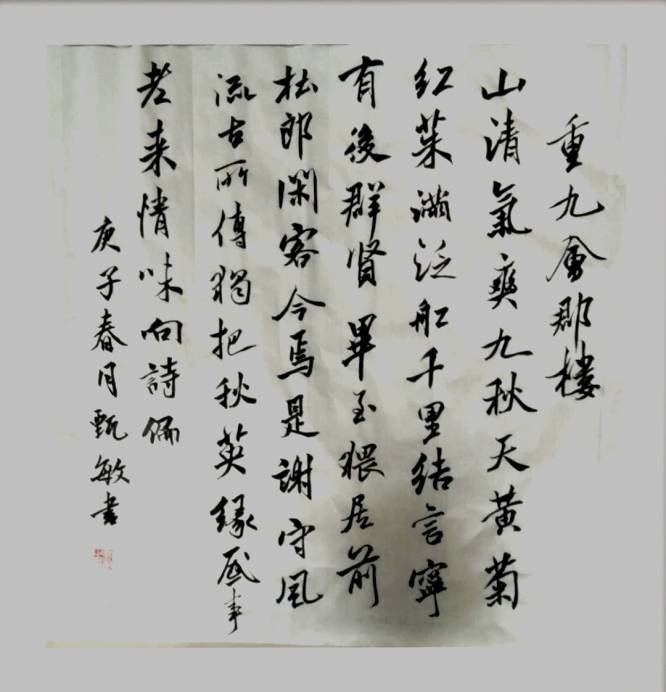 重九会郡楼
山清氣爽九秋天黄菊
红茱满泛船千里结言寧
有後群賢畢至猥居前
杜郎閑客今焉是謝守風
流古所傳獨把秋英緣底事
老来情味向詩偏
庚子春月甄敏書